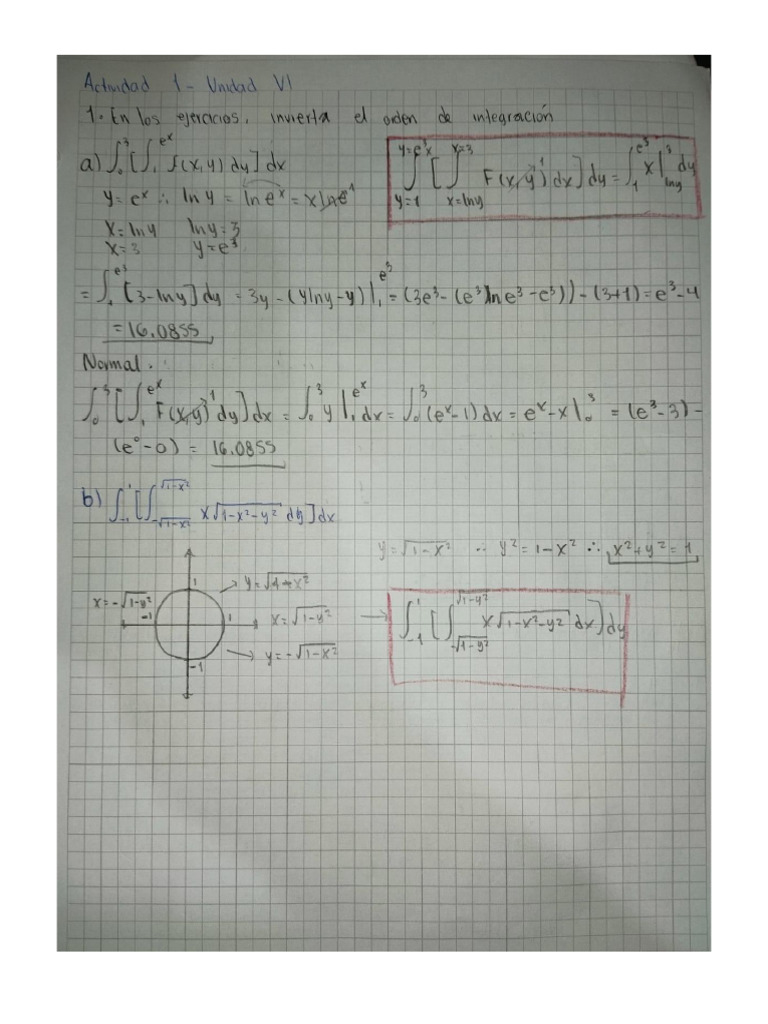 Actividad 1 - Unidad VI
1. En los ejercicios, invierta el orden de integración
a) ∫₀³ [∫₁^(eˣ) f(x,y) dy] dx
y = eˣ ∴ ln y = ln eˣ = x ln e¹
x = ln y    ln y = 3
x = 3    y = e³
∫_(y=1) [∫_(x=ln y)^(x=3) F(x,y)¹ dx] dy = ∫₁^(e³) x|_(ln y)^3 dy
= ∫₁^(e³) [3 - ln y] dy = 3y - (y ln y - y)|₁^(e³) = (3e³ - (e³ ln e³ - e³)) - (3+1) = e³ - 4
= 16.0855
Normal.
∫₀³ [∫₁^(eˣ) F(x,y)¹ dy] dx = ∫₀³ y|₁^(eˣ) dx = ∫₀³ (eˣ - 1) dx = eˣ - x|₀³ = (e³ - 3) -
(e⁰ - 0) = 16.0855
b) ∫₋₁¹ [∫_(-√(1-x²))^(√(1-x²)) x√(1-x²-y²) dy] dx
y = √(1-x²) ∴ y² = 1-x² ∴ x² + y² = 1
1
→ y = √(1-x²)
x = -√(1-y²)
-1    1
x = √(1-y²)
→ y = -√(1-x²)
-1
→ ∫₋₁¹ [∫_(-√(1-y²))^(√(1-y²)) x√(1-x²-y²) dx] dy